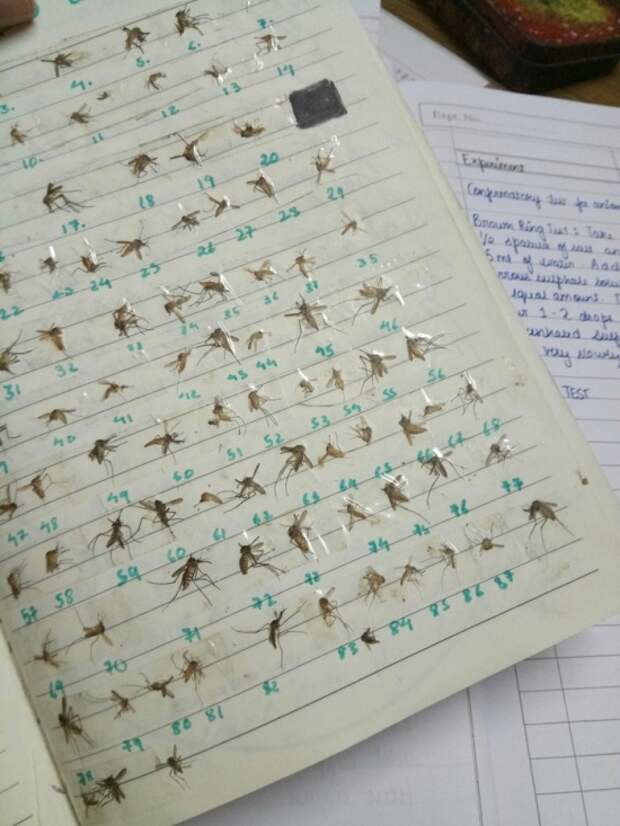 3. 4. 5. 6. 7.
10. 11 12 13 14
17. 18 19 20
22 23 24 25 26 27 28 29
31 32 33 34 35 36 37 38
40 41 42 43 44 45 46
47 48 49 50 51 52 53 54 55 56
57 58 59 60 61 62 63 64 65 66 67 68
69 70 71 72 73 74 75 76 77
78 79 80 81 82 83 84 85 86 87
Expt. No.
Experiment
Confirmatory test for
Brown Ring Test : Take
1/2 spatula of salt
5 ml of water. Add
sulphate
equal amount.
1-2 drops
very slowly
TEST